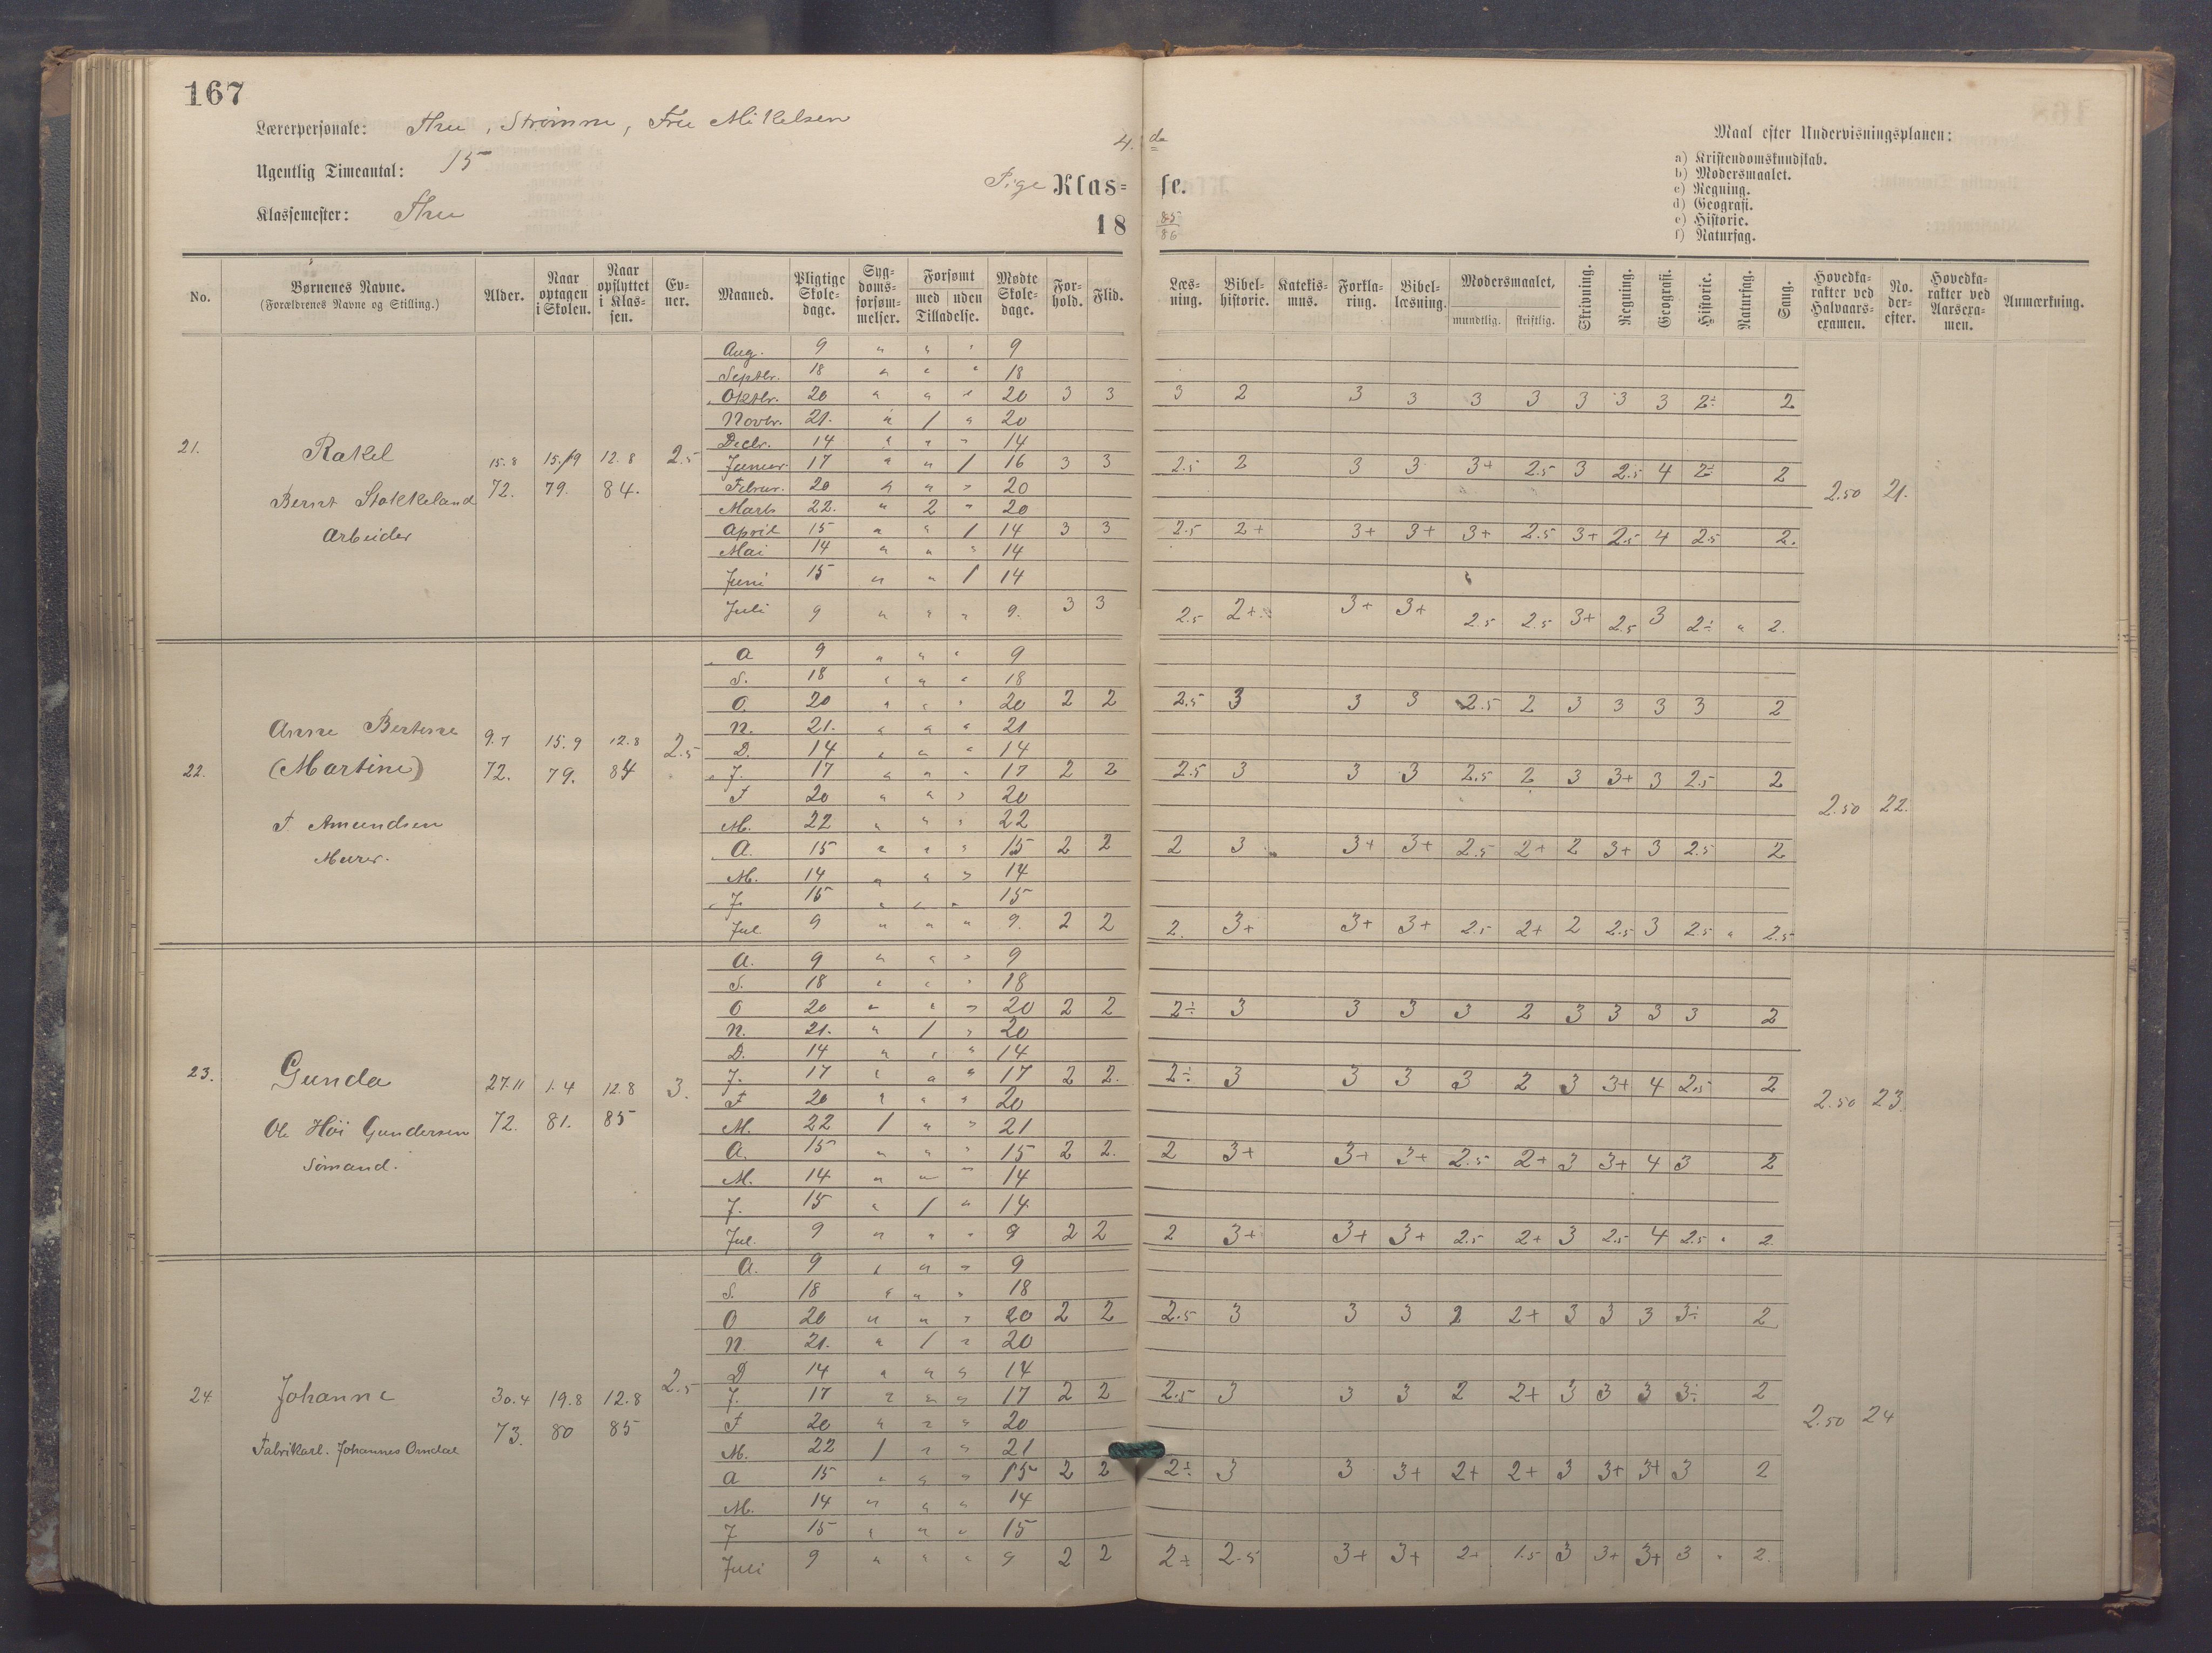 167
Lærerpersonale: Thue, Strømme, Fru Mikelsen
Ugentlig Timeantal: 15
Klassemester: Thue
4.de
Pige Klas= se.
18 85/86
Maal efter Undervisningsplanen:
a) Kristendomskundskab.
b) Modersmaalet.
c) Regning.
d) Geografi.
e) Historie.
f) Naturfag.
No. | Børnenes Navne. (Forældrenes Navne og Stilling.) | Alder. | Naar optagen i Skolen. | Naar opflyttet i Klas- sen. | Ev- ner. | Maaned. | Pligtige Skole- dage. | Syg- doms- forsøm- melser. | Forsømt med uden Tilladelse. | Mødte Skole- dage. | For- hold. | Flid. | Læs- ning. | Bibel- historie. | Katekis- mus. | Forkla- ring. | Bibel- læsning. | Modersmaalet, mundtlig. skriftlig. | Skrivning. | Regning. | Geografi. | Historie. | Naturfag. | Sang. | Hovedka- rakter ved Halvaars- examen. | No. der- efter. | Hovedka- rakter ved Aarsexa- men. | Anmærkning.
21. Rakel
Bernt Stokkeland
Arbeider
15.8 72. | 15./9 79. | 12.8 84. | 2.5
Aug. 9 " " " 9
Septbr. 18 " " " 18
Oktbr. 20 " " " 20 3 3 | 3 2 3 3 3 3 3 3 3 2÷ 2
Novbr. 21. " 1 " 20
Decbr. 14 " " " 14
Januar 17 " " 1 16 3 3 | 2.5 2 3 3 3+ 2.5 3 2.5 4 2÷ 2
Februar. 20 " " " 20
Marts 22. " 2 " 20
April 15 " " 1 14 3 3 | 2.5 2+ 3+ 3+ 3+ 2.5 3+ 2.5 4 2.5 2.
Mai 14 " " " 14
Juni 15 " " 1 14
Juli 9 " " " 9. 3 3 | 2.5 2+ 3+ 3+ 2.5 2.5 3+ 2.5 3 2÷ " 2.
2.50 21.
22. Anne Bertine
(Martine)
T Amundsen
Murer.
9.7 72. | 15.9 79. | 12.8 84 | 2.5
A 9 " " " 9
S. 18 " " " 18
O. 20 " " " 20 2 2 | 2.5 3 3 3 2.5 2 3 3 3 3 2
N. 21. " " " 21
D. 14 " " " 14
J. 17 " " " 17 2 2 | 2.5 3 3 3 2.5 2 3 3+ 3 2.5 2
F 20 " " " 20
M. 22 " " " 22
A. 15 " " " 15 2 2 | 2 3 3+ 3+ 2.5 2+ 2 3+ 3 2.5 2
M. 14 " " " 14
J. 15 " " " 15
Jul 9 " " " 9. 2 2 | 2. 3+ 3+ 3+ 2.5 2+ 2 2.5 3 2.5 " 2.5
2.50 22.
23. Gunda
Ole Höi Gundersen
Sømand.
27.11 72. | 1.4 81. | 12.8 85 | 3.
A. 9 " " " 9
S. 18 " " " 18
O 20 " " " 20 2 2 | 2÷ 3 3 3 3 2 3 3 3 3 2
N. 21. " 1 " 20
D. 14 " " " 14
J. 17 " " " 17 2 2. | 2÷ 3 3 3 3 2 3 3+ 4 2.5 2
F 20 " " " 20
M. 22 1 " " 21
A. 15 " " " 15 2 2. | 2 3+ 3+ 3+ 2.5 2+ 3 3+ 4 3 2
M. 14 " " " 14
J. 15 " 1 " 14
Jul. 9 " " " 9 2 2 | 2 3+ 3+ 3+ 2.5 2+ 3 2.5 4 2.5 " 2.
2.50 23.
24. Johanne
Fabrikarb. Johannes Omdal
30.4 73. | 19.8 80 | 12.8 85 | 2.5
A. 9 " " " 9
S. 18 " " " 18
O 20 " " " 20 2 2 | 2.5 3 3 3 2 2+ 3 3 3 3÷ 2
N. 21. " 1 " 20
D 14 " " " 14
J. 17 " " " 17 2 2 | 2.5 3 3 3 2 2+ 3 3 3 3÷ 2
F 20 " " " 20
M. 22 1 " " 21
A 15 " " " 15 2 2 | 2÷ 3 3 3+ 2+ 2+ 3 3+ 3+ 3 2
M. 14 " " " 14
J 15 " " " 15
Juli 9 " " " 9 2 2 | 2÷ 2.5 3+ 3+ 2+ 1.5 3 3+ 3+ 3 " 2.
2.50 24